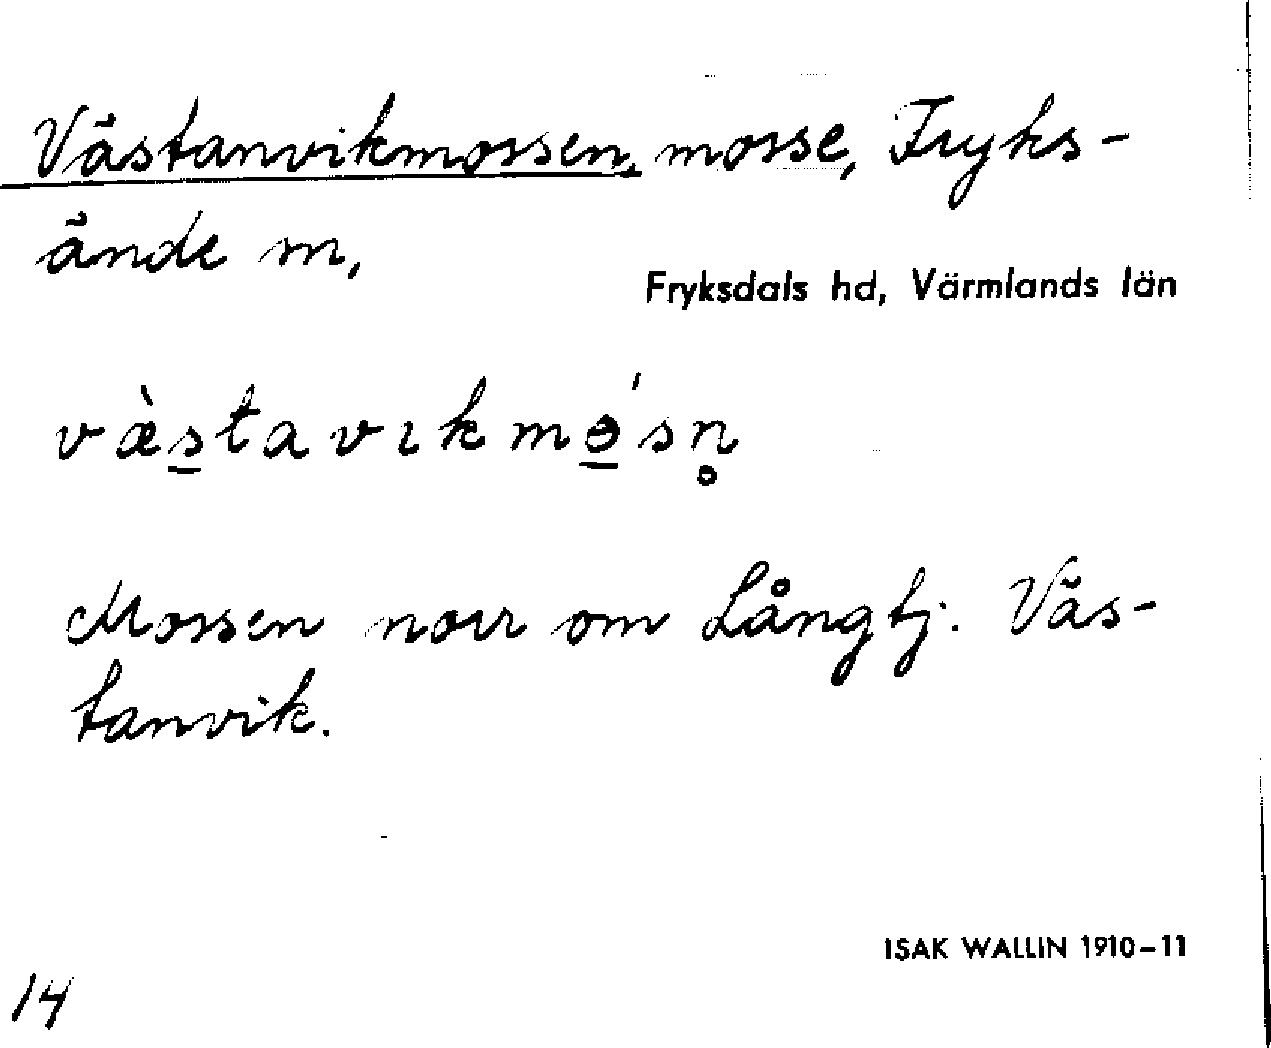 Västanvikmossen, mosse, Fryks-
ände m,
Fryksdals hd, Värmlands län
væ̀s̲tavıkmɵ̲́sn̥
Mossen norr om Långtj. Väs-
tanvik.
ISAK WALLIN 1910-11
14